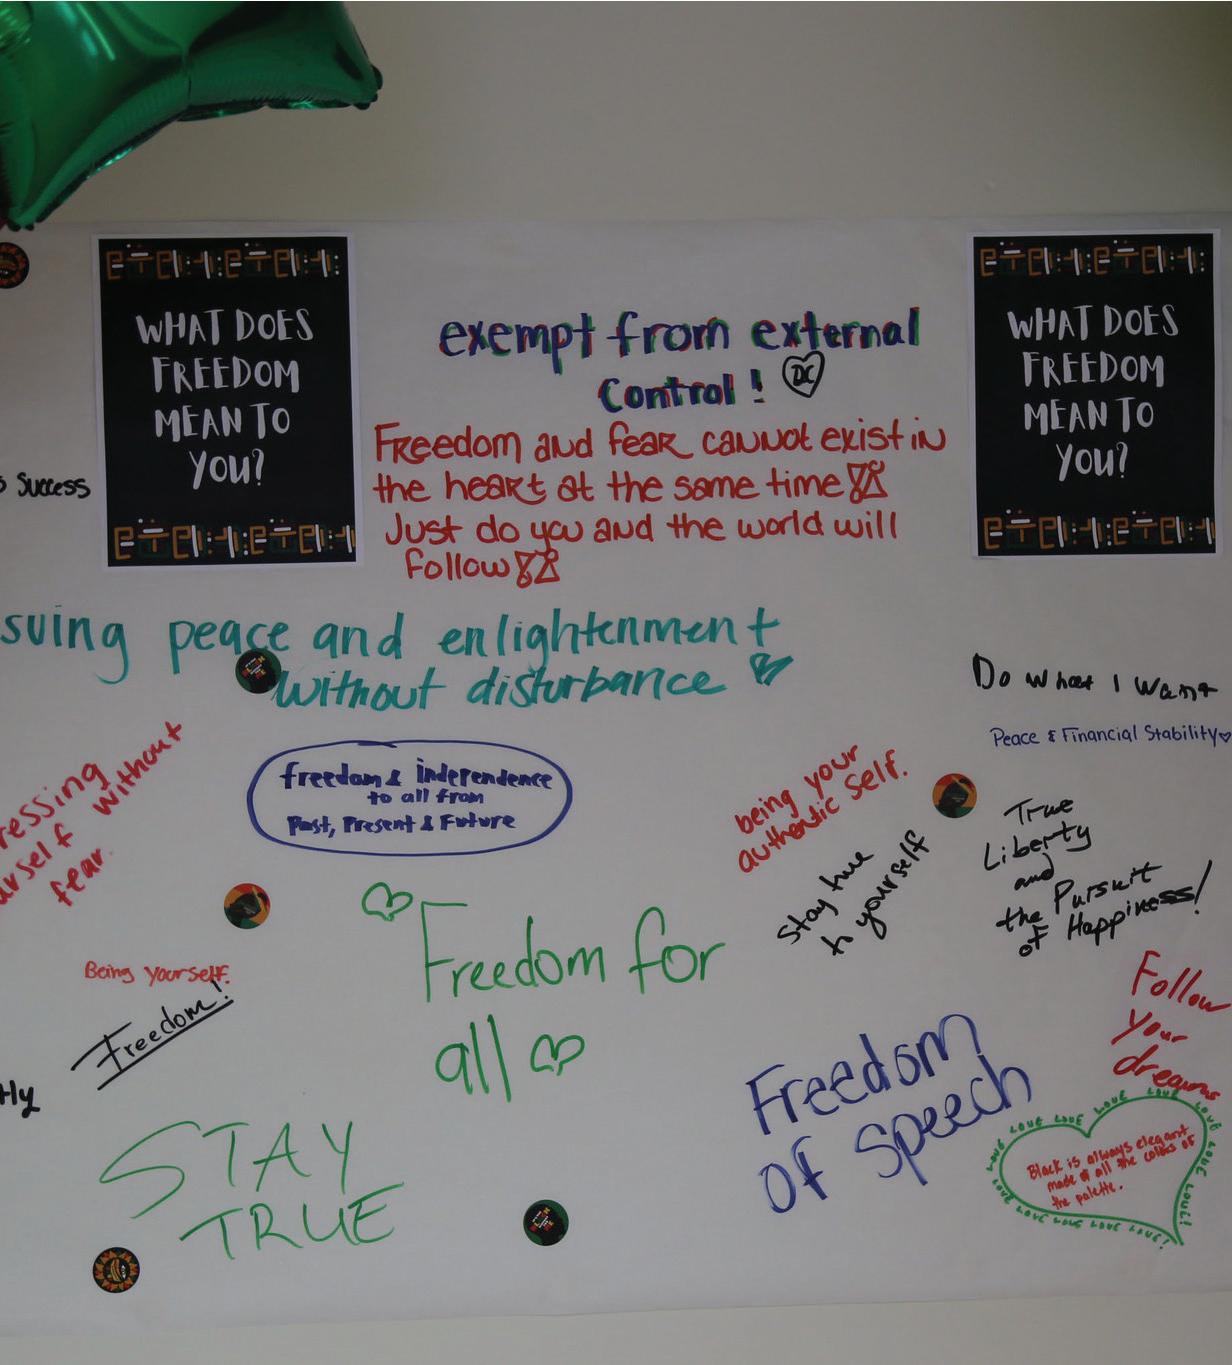 WHAT DOES
FREEDOM
MEAN TO
YOU?
exempt from external
Control !
DC
WHAT DOES
FREEDOM
MEAN TO
YOU?
Success
Freedom and fear cannot exist in
the heart at the same time
Just do you and the world will
follow
suing peace and enlightenment
without disturbance
Do what I want
Peace & Financial Stability
ressing
urself without
fear.
freedom & independence
to all from
Past, Present & Future
being your
authentic self.
Stay true
to yourself
True
Liberty
and
the Pursuit
of Happiness!
Being yourself.
Freedom!
Freedom for
all
Follow
your
dreams
tly
STAY
TRUE
Freedom
of speech
LOVE LOVE LOVE LOVE LOVE LOVE LOVE LOVE LOVE! LOVE LOVE LOVE LOVE LOVE!
Black is always elegant
made of all the colors of
the palette.